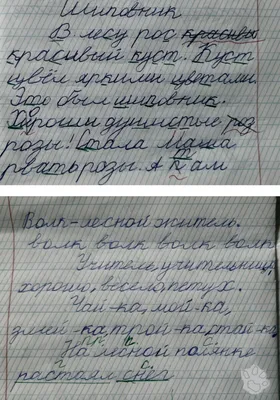 Шиповник
В лесу рос красивы
красивый куст. Куст
цвёл яркими цветами.
Это был шиповник.
Хороши душистые роз
розы! Стала Маша
рвать розы. А там
Волк-лесной житель.
волк волк волк волк
Учитель, учительница,
хорошо, весело, петух.
Чай-ка, мой-ка,
змей-ка, трой-ка, стай-ка
На лесной полянке
растаял снег